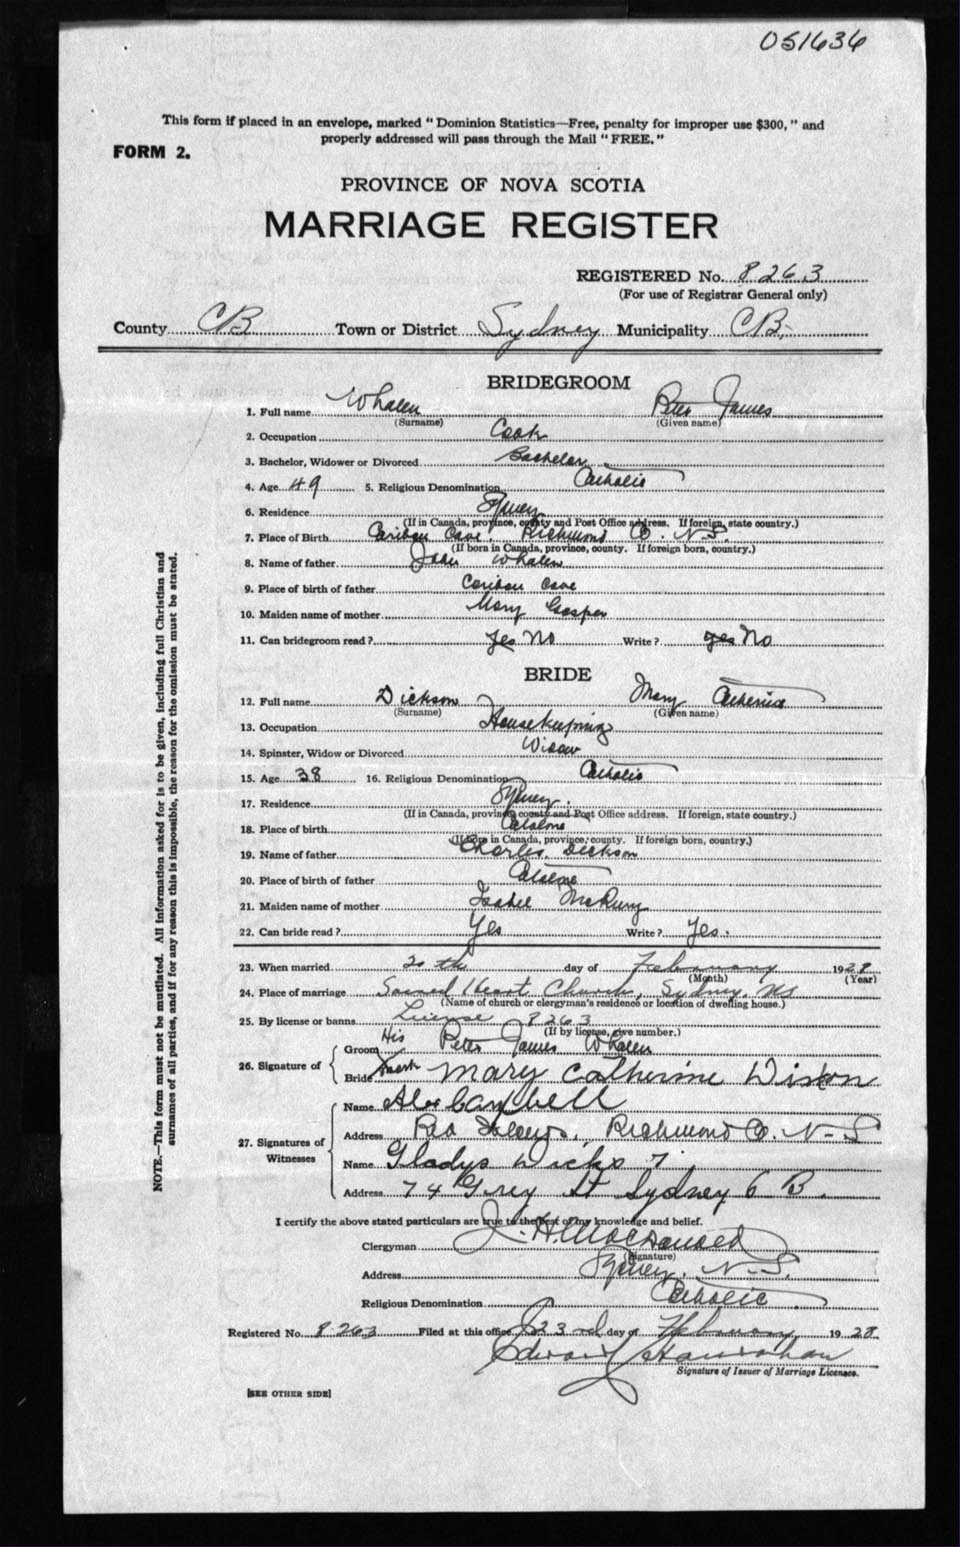 051636
This form if placed in an envelope, marked "Dominion Statistics—Free, penalty for improper use $300," and
properly addressed will pass through the Mail "FREE."
FORM 2.
PROVINCE OF NOVA SCOTIA
MARRIAGE REGISTER
REGISTERED No. 8263
(For use of Registrar General only)
County CB Town or District Sydney Municipality CB.
BRIDEGROOM
1. Full name Whalen Peter James
(Surname) (Given name)
2. Occupation Cook
3. Bachelor, Widower or Divorced Bachelor
4. Age 49 5. Religious Denomination Catholic
6. Residence Sydney
(If in Canada, province, county and Post Office address. If foreign, state country.)
7. Place of Birth Caribou Cove, Richmond Co. N.S.
(If born in Canada, province, county. If foreign born, country.)
8. Name of father John Whalen
9. Place of birth of father Caribou Cove
10. Maiden name of mother Mary Gasper
11. Can bridegroom read? Yes No Write? Yes No
BRIDE
12. Full name Dickson Mary Catherine
(Surname) (Given name)
13. Occupation Housekeeping
14. Spinster, Widow or Divorced Widow
15. Age 38 16. Religious Denomination Catholic
17. Residence Sydney.
(If in Canada, province county and Post Office address. If foreign, state country.)
18. Place of birth Catalone
(If born in Canada, province, county. If foreign born, country.)
19. Name of father Charles Dickson
20. Place of birth of father Catalone
21. Maiden name of mother Isabel
22. Can bride read? Yes Write? Yes.
23. When married 20th day of February 1929
(Month) (Year)
24. Place of marriage Sacred Heart Church, Sydney, NS
(Name of church or clergyman's residence or location of dwelling house.)
25. By license or banns License 8263
(If by license, give number.)
26. Signature of
Groom His Peter James Whalen
Bride mark Mary Catherine Dixon
27. Signatures of Witnesses
Name Alex Campbell
Address Richmond Co. N-S
Name Gladys
Address 74 Grey St Sydney C B.
I certify the above stated particulars are true to the best of my knowledge and belief.
Clergyman J. H. MacDonald
(Signature)
Address Sydney, N.S.
Religious Denomination Catholic
Registered No. 8263 Filed at this office 23rd day of February 1928
Edward
Signature of Issuer of Marriage Licenses.
[SEE OTHER SIDE]
NOTE.—This form must not be mutilated. All information asked for is to be given, including full Christian and
surnames of all parties, and if for any reason this is impossible, the reason for the omission must be stated.